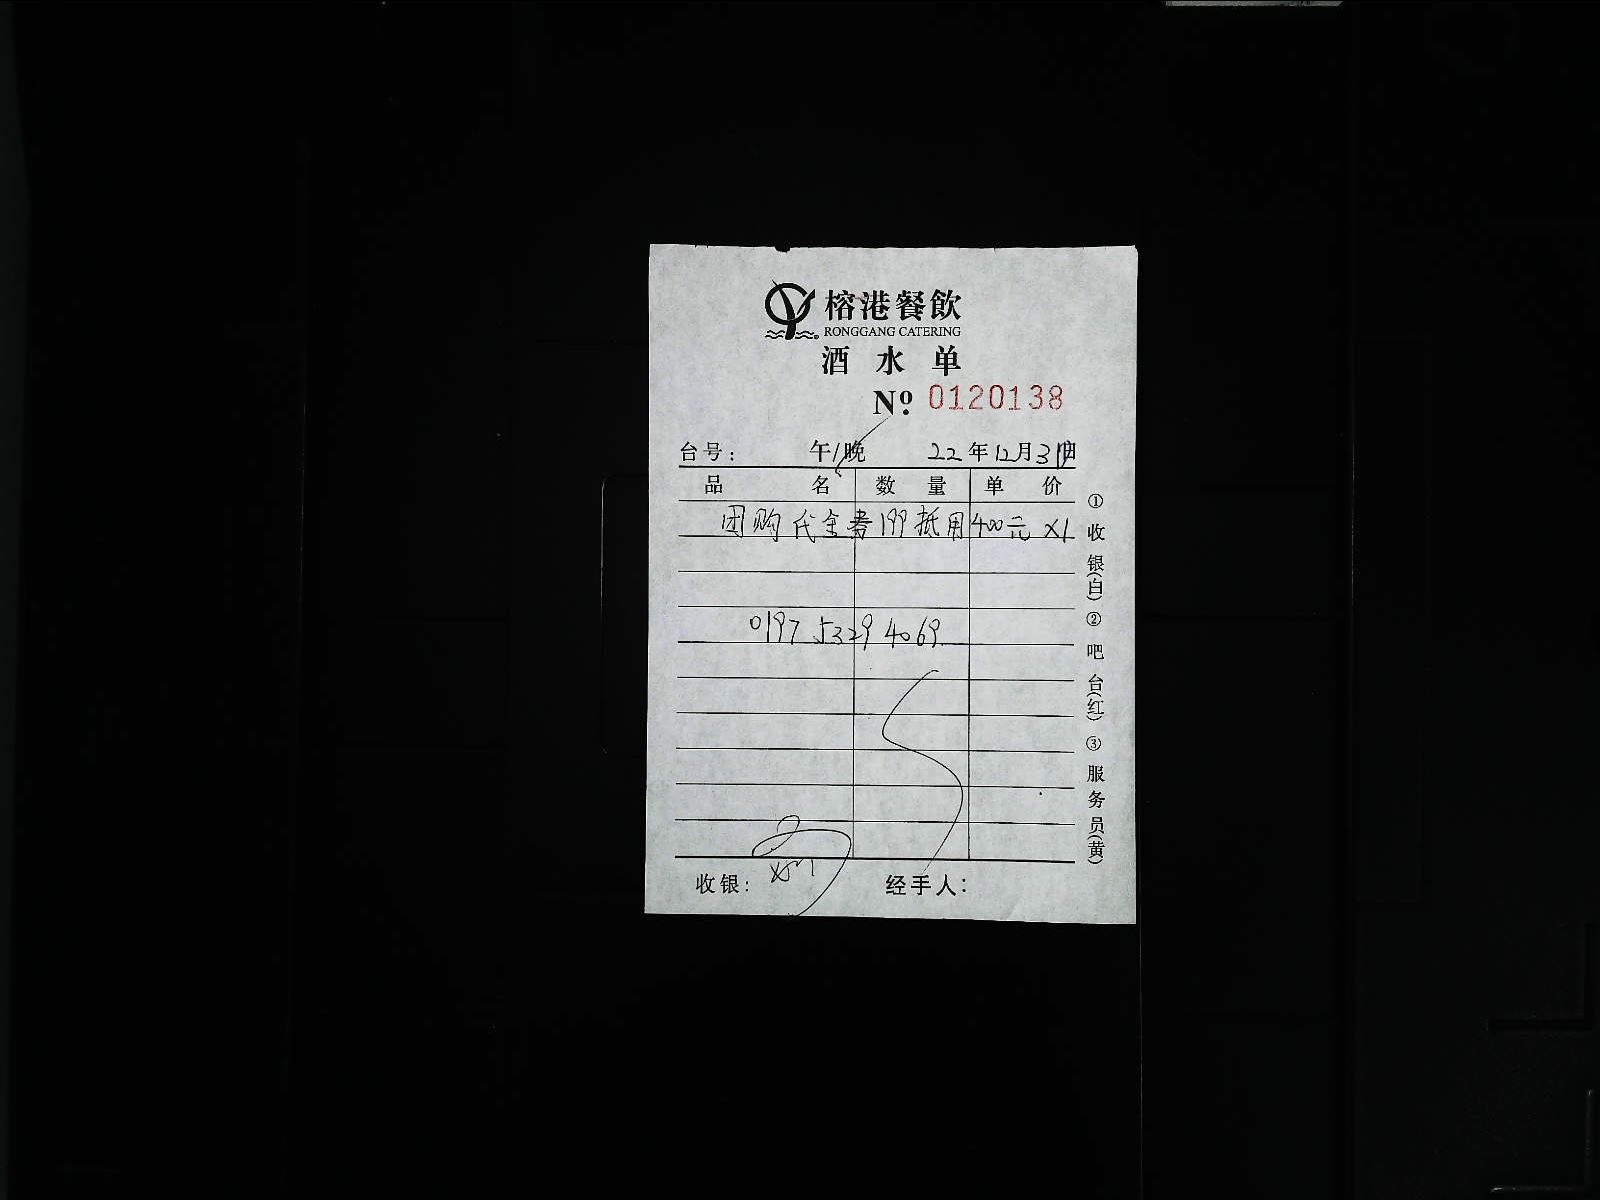 榕港餐飲
RONGGANG CATERING
酒水单
Nº. 0120138
台号： 午/晚 22年12月31日
品名 数量 单价
团购代金券199抵用400元 X1
0197 5329 4069
收银： 经手人：
①收银(白) ②吧台(红) ③服务员(黄)